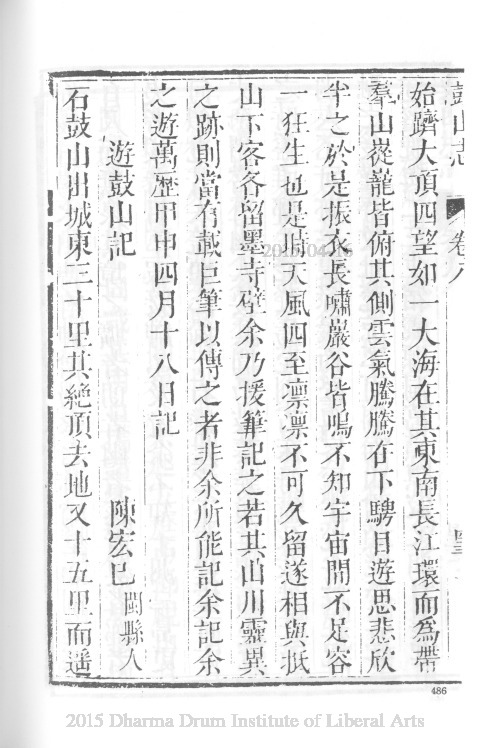 鼓山志 卷八
始躋大頂四望如一大海在其東南長江環而為帶
羣山嵸巃皆俯其側雲氣騰騰在下騁目遊思悲欣
半之於是振衣長嘯巖谷皆鳴不知宇宙間不足容
一狂生也是時天風四至凛凛不可久留遂相與抵
山下客各留墨寺壁余乃援筆記之若其山川靈異
之跡則當有載巨筆以傳之者非余所能記余記余
之遊萬歷甲申四月十八日記
遊鼓山記 陳宏巳 閩縣人
石鼓山出城東三十里其絶頂去地又十五里而遥
2015/04/16
486
2015 Dharma Drum Institute of Liberal Arts